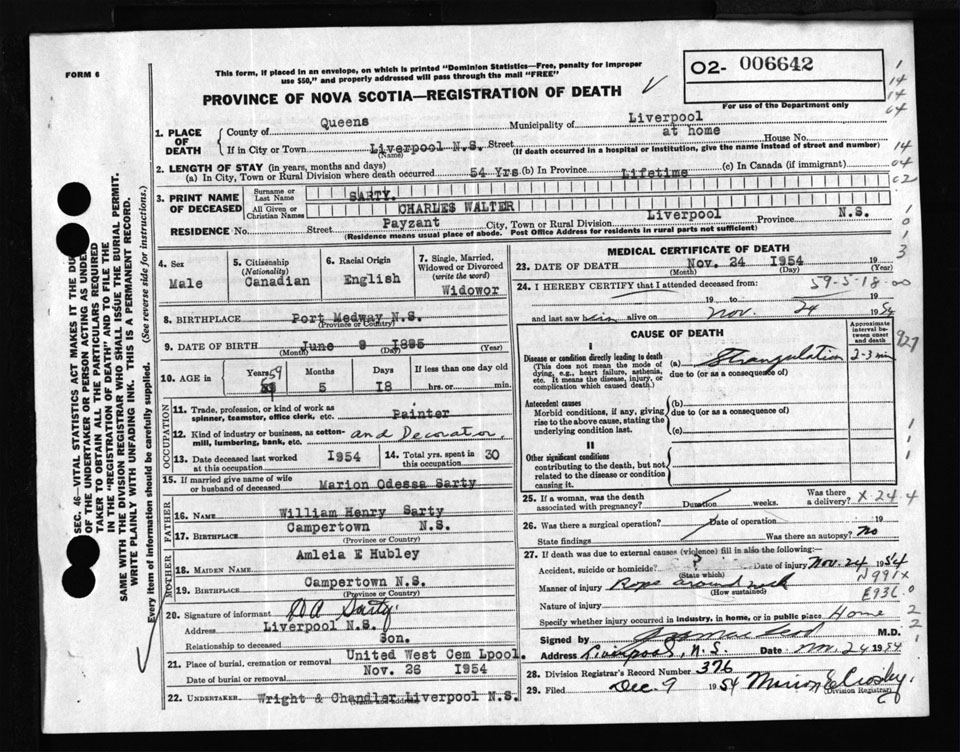 FORM 6
This form, if placed in an envelope, on which is printed "Dominion Statistics—Free, penalty for improper
use $50," and properly addressed will pass through the mail "FREE"
O2- 006642
For use of the Department only
PROVINCE OF NOVA SCOTIA—REGISTRATION OF DEATH
1. PLACE OF DEATH
County of Queens Municipality of Liverpool
If in City or Town Liverpool N.S. Street at home House No.
(Name) (If death occurred in a hospital or institution, give the name instead of street and number)
2. LENGTH OF STAY (in years, months and days)
(a) In City, Town or Rural Division where death occurred 54 Yrs (b) In Province Lifetime (c) In Canada (if immigrant)
3. PRINT NAME OF DECEASED
Surname or Last Name SARTY.
All Given or Christian Names CHARLES WALTER
RESIDENCE No. Street Payzant City, Town or Rural Division Liverpool Province N.S.
(Residence means usual place of abode. Post Office Address for residents in rural parts not sufficient)
4. Sex
Male
5. Citizenship
(Nationality)
Canadian
6. Racial Origin
English
7. Single, Married, Widowed or Divorced
(write the word)
Widowor
8. BIRTHPLACE Port Medway N.S.
(Province or Country)
9. DATE OF BIRTH June 1895
(Month) (Day) (Year)
10. AGE in
Years 59
Months 5
Days 18
If less than one day old
hrs. or min.
OCCUPATION
11. Trade, profession, or kind of work as
spinner, teamster, office clerk, etc. Painter
12. Kind of industry or business, as cotton-
mill, lumbering, bank, etc. and Decorator
13. Date deceased last worked
at this occupation 1954
14. Total yrs. spent in
this occupation 30
15. If married give name of wife
or husband of deceased Marion Odessa Sarty
FATHER
16. NAME William Henry Sarty
17. BIRTHPLACE Campertown N.S.
(Province or Country)
MOTHER
18. MAIDEN NAME Amleia E Hubley
19. BIRTHPLACE Campertown N.S.
(Province or Country)
20. Signature of informant Sarty
Address Liverpool N.S.
Son.
21. Place of burial, cremation or removal United West Cem Lpool.
Date of burial or removal Nov. 26 1954
22. UNDERTAKER Wright & Chandler Liverpool N.S.
(Name and address)
MEDICAL CERTIFICATE OF DEATH
23. DATE OF DEATH Nov. 24 1954 19
(Month) (Day) (Year)
24. I HEREBY CERTIFY that I attended deceased from: 59-5-18-00
19 to 19
and last saw him alive on Nov. 24 1954
CAUSE OF DEATH
Approximate interval between onset and death
I
Disease or condition directly leading to death
(This does not mean the mode of dying, e.g., heart failure, asthenia, etc. It means the disease, injury, or complication which caused death.)
(a) Strangulation 2-3 min
due to (or as a consequence of)
Antecedent causes
Morbid conditions, if any, giving rise to the above cause, stating the underlying condition last.
(b)
due to (or as a consequence of)
(c)
II
Other significant conditions
contributing to the death, but not related to the disease or condition causing it.
25. If a woman, was the death
associated with pregnancy? Duration weeks. Was there a delivery? X-24-4
26. Was there a surgical operation? Date of operation 19
State findings Was there an autopsy? No
27. If death was due to external causes (violence) fill in also the following:
Accident, suicide or homicide? ? Date of injury Nov. 24 1954
(State which)
N991X
Manner of injury Rope around neck
(How sustained)
E936
Nature of injury
Specify whether injury occurred in industry, in home, or in public place Home
Signed by M.D.
Address Liverpool, N.S. Date Nov. 24 1954
28. Division Registrar's Record Number 376
29. Filed Dec. 9 1954 Marion E Crosby
(Division Registrar)
SEC. 46—VITAL STATISTICS ACT MAKES IT THE DU
OF THE UNDERTAKER OR PERSON ACTING AS UNDE
TAKER TO OBTAIN ALL THE PARTICULARS REQUIRED
IN THE "REGISTRATION OF DEATH" AND TO FILE THE
SAME WITH THE DIVISION REGISTRAR WHO SHALL ISSUE THE BURIAL PERMIT.
WRITE PLAINLY WITH UNFADING INK. THIS IS A PERMANENT RECORD.
Every item of information should be carefully supplied. (See reverse side for instructions.)
1
14
14
04
14
04
02
3
927